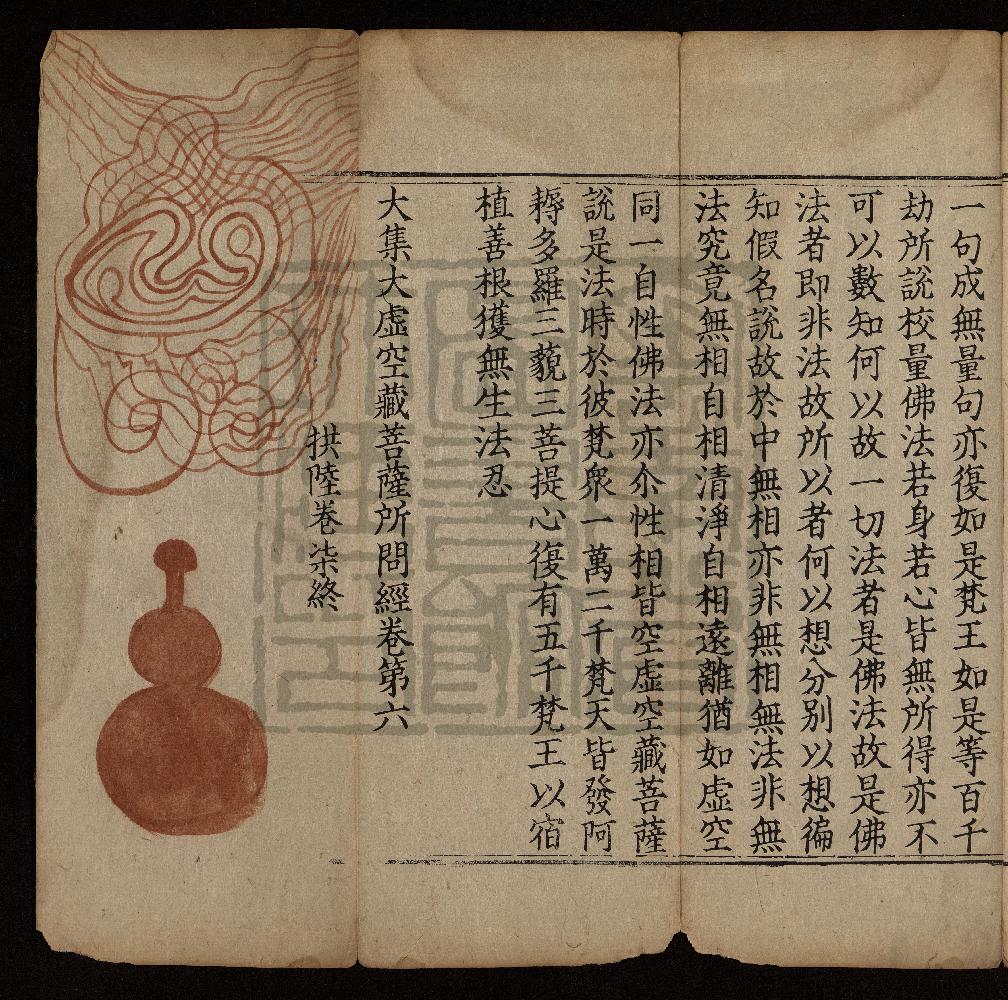 一句成無量句亦復如是梵王如是等百千
劫所說校量佛法若身若心皆無所得亦不
可以數知何以故一切法者是佛法故是佛
法者即非法故所以者何以想分別以想徧
知假名說故於中無相亦非無相無法非無
法究竟無相自相清淨自相遠離猶如虛空
同一自性佛法亦尒性相皆空虛空藏菩薩
說是法時於彼梵衆一萬二千梵天皆發阿
耨多羅三藐三菩提心復有五千梵王以宿
植善根獲無生法忍
大集大虛空藏菩薩所問經卷第六
拱陸卷柒終